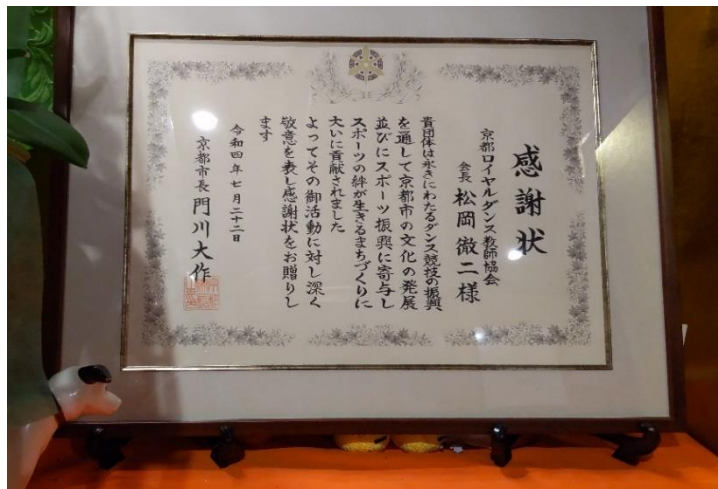 感謝状
京都ロイヤルダンス教師協会
会長 松岡徹二様
貴団体は永きにわたるダンス競技の振興
を通して京都市の文化の発展
並びにスポーツ振興に寄与し
スポーツの絆が生きるまちづくりに
大いに貢献されました
よってその御活動に対し深く
敬意を表し感謝状をお贈りし
ます
令和四年七月二十二日
京都市長 門川大作